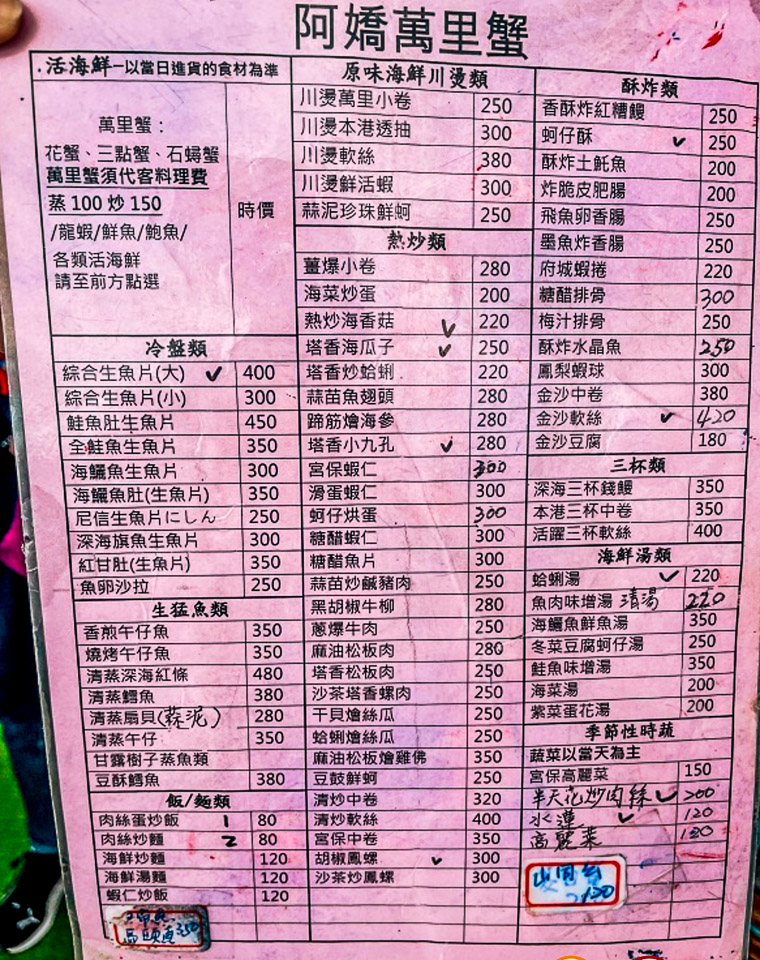 阿嬌萬里蟹
.活海鮮—以當日進貨的食材為準
萬里蟹：
花蟹、三點蟹、石蟳蟹
萬里蟹須代客料理費
蒸 100 炒 150
/龍蝦/鮮魚/鮑魚/
各類活海鮮
請至前方點選
時價
冷盤類
綜合生魚片(大) ✓ 400
綜合生魚片(小) 300
鮭魚肚生魚片 450
全鮭魚生魚片 350
海鱺魚生魚片 300
海鱺魚肚(生魚片) 350
尼信生魚片にしん 250
深海旗魚生魚片 300
紅甘肚(生魚片) 350
魚卵沙拉 250
生猛魚類
香煎午仔魚 350
燒烤午仔魚 350
清蒸深海紅條 480
清蒸鱈魚 380
清蒸扇貝(蒜泥) 280
清蒸午仔 350
甘露樹子蒸魚類
豆酥鱈魚 380
飯/麵類
肉絲蛋炒飯 1 80
肉絲炒麵 2 80
海鮮炒麵 120
海鮮湯麵 120
蝦仁炒飯 120
原味海鮮川燙類
川燙萬里小卷 250
川燙本港透抽 300
川燙軟絲 380
川燙鮮活蝦 300
蒜泥珍珠鮮蚵 250
熱炒類
薑爆小卷 280
海菜炒蛋 200
熱炒海香菇 ✓ 220
塔香海瓜子 ✓ 250
塔香炒蛤蜊 220
蒜苗魚翅頭 280
蹄筋燴海參 280
塔香小九孔 ✓ 280
宮保蝦仁 300
滑蛋蝦仁 300
蚵仔烘蛋 300
糖醋蝦仁 300
糖醋魚片 300
蒜苗炒鹹豬肉 250
黑胡椒牛柳 280
蔥爆牛肉 250
麻油松板肉 280
塔香松板肉 250
沙茶塔香螺肉 250
干貝燴絲瓜 250
蛤蜊燴絲瓜 250
麻油松板燴雞佛 350
豆鼓鮮蚵 250
清炒中卷 320
清炒軟絲 400
宮保中卷 350
胡椒鳳螺 ✓ 300
沙茶炒鳳螺 300
酥炸類
香酥炸紅糟鰻 250
蚵仔酥 ✓ 250
酥炸土魠魚 200
炸脆皮肥腸 200
飛魚卵香腸 250
墨魚炸香腸 250
府城蝦捲 220
糖醋排骨 300
梅汁排骨 250
酥炸水晶魚 250
鳳梨蝦球 300
金沙中卷 380
金沙軟絲 ✓ 420
金沙豆腐 180
三杯類
深海三杯錢鰻 350
本港三杯中卷 350
活躍三杯軟絲 400
海鮮湯類
蛤蜊湯 ✓ 220
魚肉味增湯 清湯 220
海鱺魚鮮魚湯 350
冬菜豆腐蚵仔湯 250
鮭魚味增湯 350
海菜湯 200
紫菜蛋花湯 200
季節性時蔬
蔬菜以當天為主
宮保高麗菜 150
半天花炒肉絲 ✓ 200
水蓮 ✓ 120
高麗菜 120